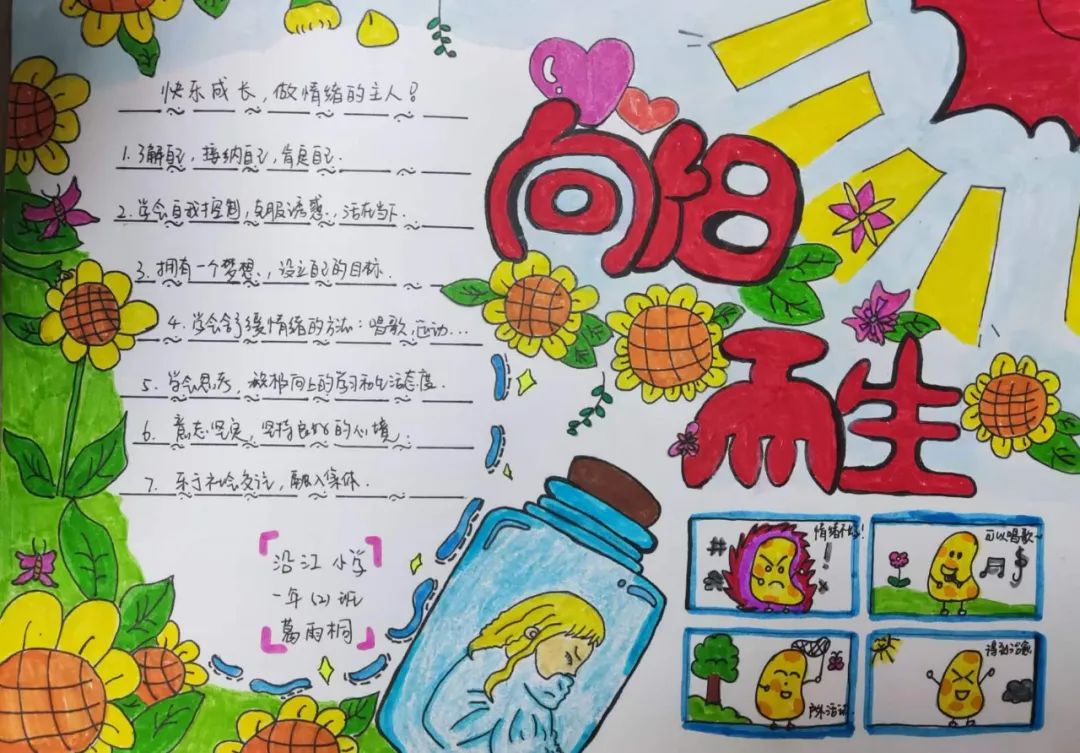 快乐成长，做情绪的主人！
1. 了解自己，接纳自己，肯定自己.
2. 学会自我控制，克服诱惑，活在当下.
3. 拥有一个梦想，设立自己的目标.
4. 学会舒缓情绪的方法：唱歌.运动...
5. 学会思考，积极向上的学习和生活态度.
6. 意志坚定，坚持良好的心境.
7. 乐于社会交往，融入集体.
沿江小学
一年(2)班
葛雨桐
向阳
而生
情绪不好！
可以唱歌~
户外活动